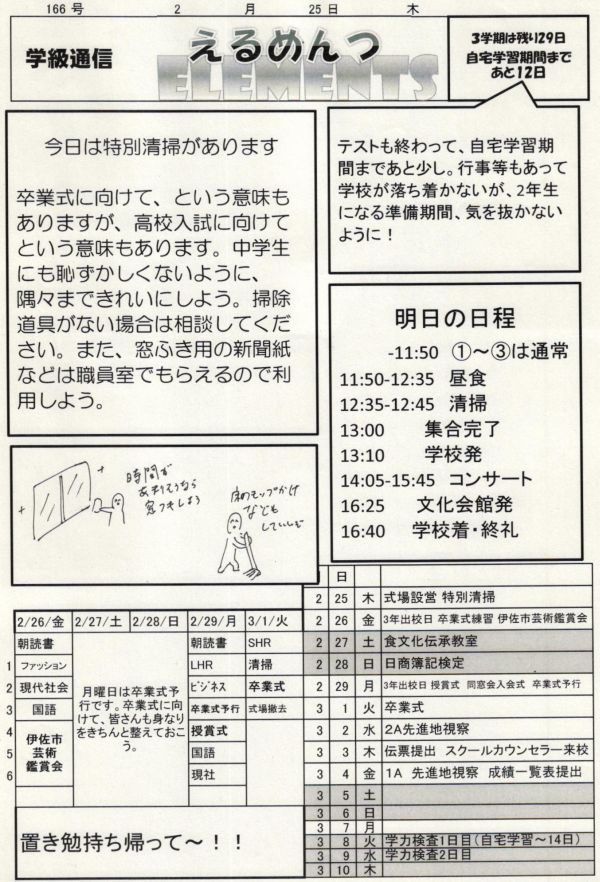 166 号 2 月 25日 木
学級通信
えるめんつ
ELEMENTS
3学期は残り29日
自宅学習期間まで
あと12日
今日は特別清掃があります
卒業式に向けて、という意味も
ありますが、高校入試に向けて
という意味もあります。中学生
にも恥ずかしくないように、
隅々まできれいにしよう。掃除
道具がない場合は相談してくだ
さい。また、窓ふき用の新聞紙
などは職員室でもらえるので利
用しよう。
テストも終わって、自宅学習期
間まであと少し。行事等もあって
学校が落ち着かないが、2年生
になる準備期間、気を抜かない
ように！
明日の日程
-11:50 ①～③は通常
11:50-12:35 昼食
12:35-12:45 清掃
13:00 集合完了
13:10 学校発
14:05-15:45 コンサート
16:25 文化会館発
16:40 学校着・終礼
時間が
あまりそうなら
窓フキしよう
床のモップがけ
なども
していいぞ
2/26/金 2/27/土 2/28/日 2/29/月 3/1/火
朝読書 朝読書 SHR
1 ファッション LHR 清掃
2 現代社会 ビジネス 卒業式
3 国語 卒業式予行 式場撤去
4 授賞式
5 国語
6 現社
伊佐市
芸術
鑑賞会
月曜日は卒業式予
行です。卒業式に向
けて、皆さんも身なり
をきちんと整えておこ
う。
置き勉持ち帰って～！！
日
2 25 木 式場設営 特別清掃
2 26 金 3年出校日 卒業式練習 伊佐市芸術鑑賞会
2 27 土 食文化伝承教室
2 28 日 日商簿記検定
2 29 月 3年出校日 授賞式 同窓会入会式 卒業式予行
3 1 火 卒業式
3 2 水 2A先進地視察
3 3 木 伝票提出 スクールカウンセラー来校
3 4 金 1A 先進地視察 成績一覧表提出
3 5 土
3 6 日
3 7 月
3 8 火 学力検査1日目（自宅学習～14日）
3 9 水 学力検査2日目
3 10 木